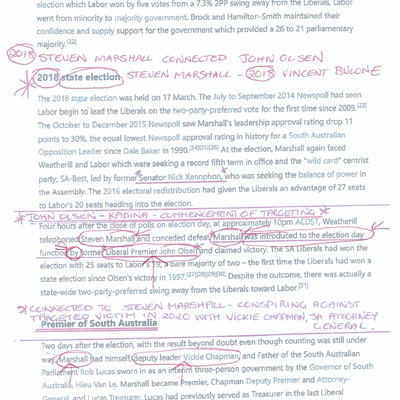 election which Labor won by five votes from a 7.3% 2PP swing away from the Liberals, Labor
went from minority to majority government. Brock and Hamilton-Smith maintained their
confidence and supply support for the government which provided a 26 to 21 parliamentary
majority.[22]
2018 STEVEN MARSHALL CONNECTED JOHN OLSEN
2018 state election STEVEN MARSHALL - 2018 VINCENT
The 2018 state election was held on 17 March. The July to September 2014 Newspoll had seen
Labor begin to lead the Liberals on the two-party-preferred vote for the first time since 2009.[23]
The October to December 2015 Newspoll saw Marshall's leadership approval rating drop 11
points to 30%, the equal lowest Newspoll approval rating in history for a South Australian
Opposition Leader since Dale Baker in 1990.[24][25][26] At the election, Marshall again faced
Weatherill and Labor which were seeking a record fifth term in office and the "wild card" centrist
party, SA-Best, led by former Senator Nick Xenophon, who was seeking the balance of power in
the Assembly. The 2016 electoral redistribution had given the Liberals an advantage of 27 seats
to Labor's 20 seats heading into the election.
JOHN OLSEN - KADINA - COMMENCEMENT OF TARGETING
Four hours after the close of polls on election day, at approximately 10pm ACDST, Weatherill
telephoned Steven Marshall and conceded defeat. Marshall was introduced to the election day
function by former Liberal Premier John Olsen and claimed victory. The SA Liberals had won the
election with 25 seats to Labor's 19, a bare majority of two – the first time the Liberals had won a
state election since Olsen's victory in 1997.[27][28][29][30] Despite the outcome, there was actually a
state-wide two-party-preferred swing away from the Liberals toward Labor.[31]
CONNECTED TO STEVEN MARSHALL - CONSPIRING AGAINST
TARGETED VICTIM IN 2020 WITH VICKIE CHAPMAN, SA ATTORNEY
GENERAL.
Premier of South Australia
Two days after the election, with the result beyond doubt even though counting was still under
way, Marshall had himself, deputy leader Vickie Chapman, and Father of the South Australian
Parliament Rob Lucas sworn in as an interim three-person government by the Governor of South
Australia, Hieu Van Le. Marshall became Premier, Chapman Deputy Premier and Attorney-
General, and Lucas Treasurer. Lucas had previously served as Treasurer in the last Liberal